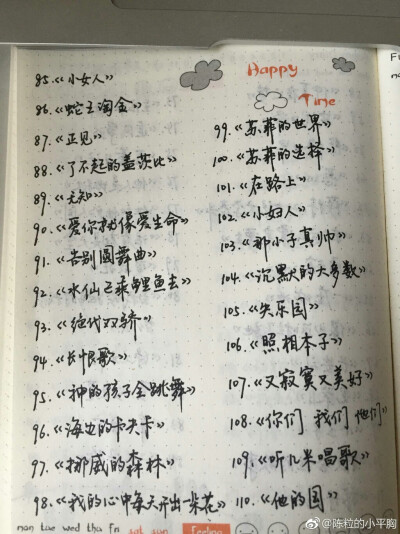 Happy
Time
85.《小女人》
86.《蛇王淘金》
87.《正见》
88.《了不起的盖茨比》
89.《无知》
90.《爱你就像爱生命》
91.《告别圆舞曲》
92.《水仙已乘鲤鱼去》
93.《绝代双骄》
94.《长恨歌》
95.《神的孩子全跳舞》
96.《海边的卡夫卡》
97.《挪威的森林》
98.《我的心中每天开出一朵花》
99.《苏菲的世界》
100.《苏菲的选择》
101.《在路上》
102.《小妇人》
103.《那小子真帅》
104.《沉默的大多数》
105.《失乐园》
106.《照相本子》
107.《又寂寞又美好》
108.《你们 我们 他们》
109.《听几米唱歌》
110.《他的国》
mon tue wed thu fri sat sun Feeling
@陈粒的小平胸